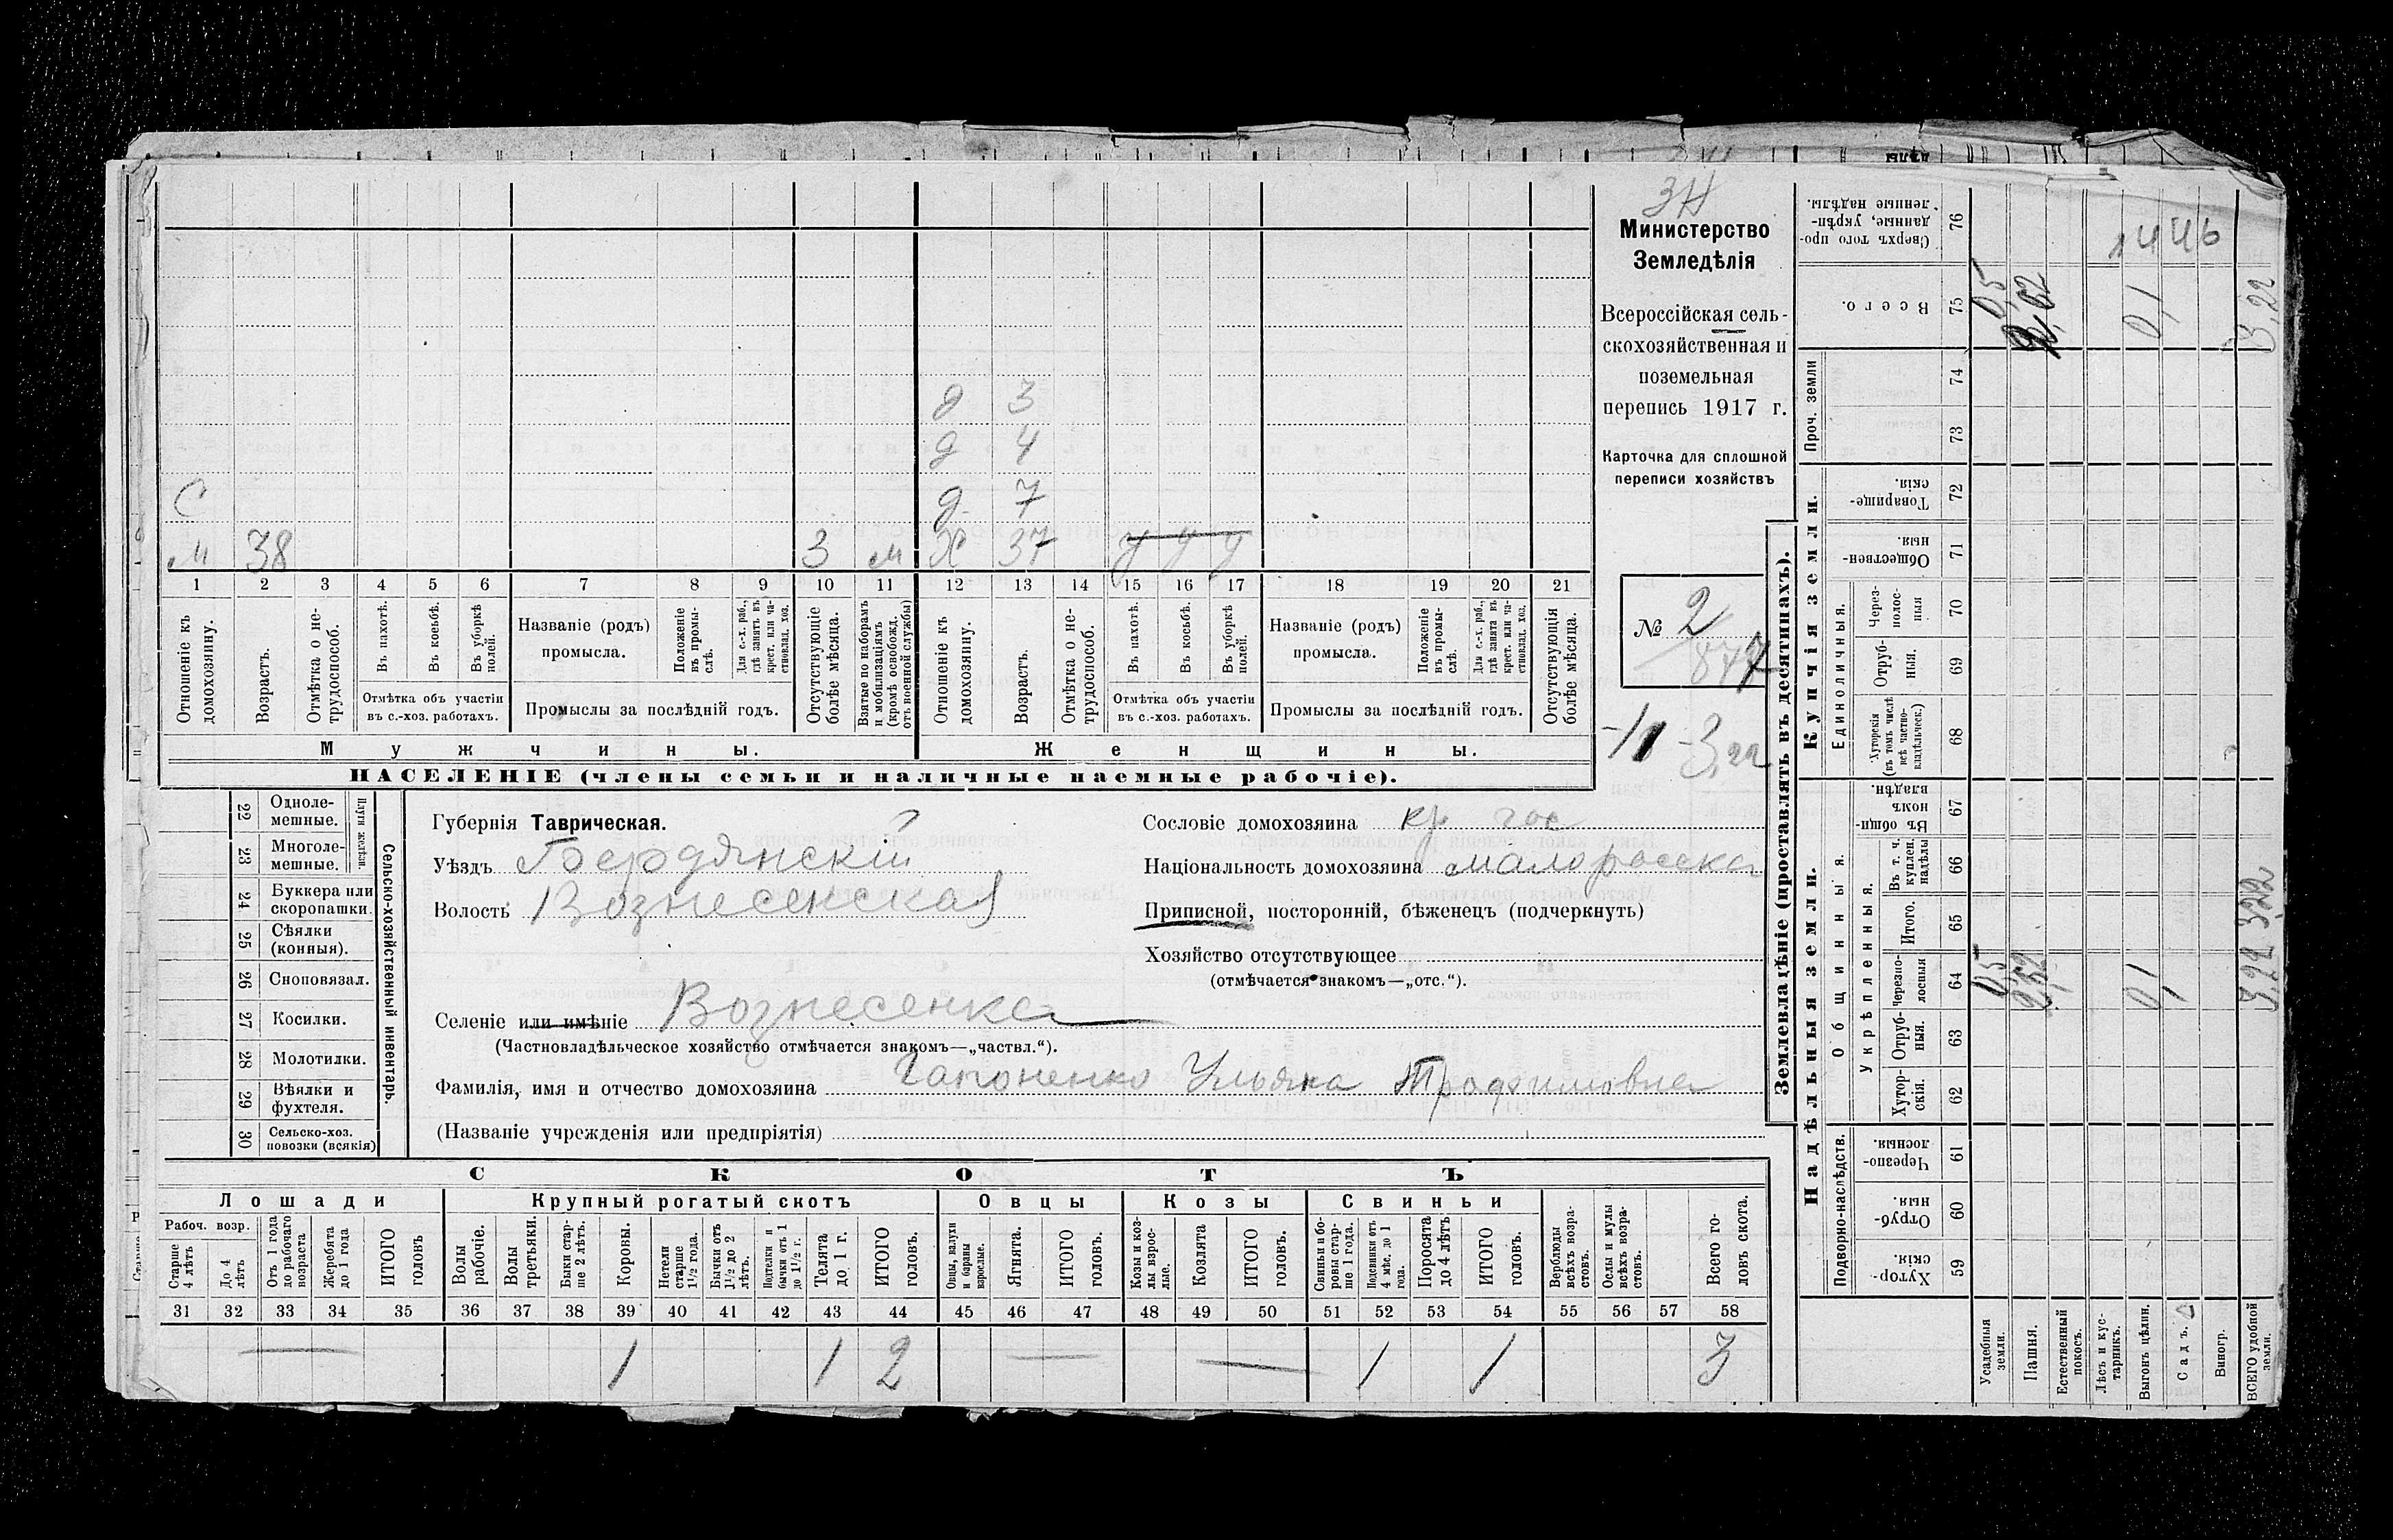 3Н
Министерство
Земледѣлія
Всероссійская сель-
скохозяйственная и
поземельная
перепись 1917 г.
Карточка для сплошной
переписи хозяйствъ
№ 2
847
3,22
д 3
д 4
С д 7
м 38 3 м Х 37 У У У
1 2 3 4 5 6 7 8 9 10 11 12 13 14 15 16 17 18 19 20 21
Отношеніе къ домохозяину.
Возрастъ.
Отмѣтка о не-трудоспособ.
Въ пахотѣ.
Въ косьбѣ.
Въ уборкѣ полей.
Отмѣтка объ участіи
въ с.-хоз. работахъ.
Названіе (родъ)
промысла.
Положеніе въ промы-слѣ.
Для с.-х. раб., гдѣ занятъ въ крест. или ча-стновлад. хоз.
Промыслы за послѣдній годъ.
Отсутствующіе болѣе мѣсяца.
Взятые по наборамъ и мобилизаціямъ (кромѣ освобожд. отъ военной службы)
Отношеніе къ домохозяину.
Возрастъ.
Отмѣтка о не-трудоспособ.
Въ пахотѣ.
Въ косьбѣ.
Въ уборкѣ полей.
Отмѣтка объ участіи
въ с.-хоз. работахъ.
Названіе (родъ)
промысла.
Положеніе въ промы-слѣ.
Для с.-х. раб., гдѣ занята въ крест. или ча-стновлад. хоз.
Промыслы за послѣдній годъ.
Отсутствующія болѣе мѣсяца.
Мужчины. Женщины.
НАСЕЛЕНІЕ (члены семьи и наличные наемные рабочіе).
22 Одноле-мешные.
23 Многоле-мешные.
Плуги желѣзн.
24 Буккера или скоропашки.
25 Сѣялки (конныя).
26 Сноповязал.
27 Косилки.
28 Молотилки.
29 Вѣялки и фухтеля.
30 Сельско-хоз. повозки (всякія)
Сельско-хозяйственный инвентарь.
Губернія Таврическая.
Уѣздъ Бердянскій
Волость Вознесенская
Селеніе или имѣніе Вознесенка
(Частновладѣльческое хозяйство отмѣчается знакомъ—„частвл.“).
Фамилія, имя и отчество домохозяина Гапоненко Ульяна Трофимовна
(Названіе учрежденія или предпріятія)
Сословіе домохозяина кр гос
Національность домохозяина малоросска
Приписной, посторонній, бѣженецъ (подчеркнуть)
Хозяйство отсутствующее
(отмѣчается знакомъ—„отс.“).
СКОТЪ
Лошади Крупный рогатый скотъ Овцы Козы Свиньи
Рабоч. возр.
Старше 4 лѣтъ
До 4 лѣтъ
Отъ 1 года до рабочаго возраста
Жеребята до 1 года
ИТОГО головъ
Волы рабочіе.
Волы третьяки.
Быки стар-ше 2 лѣтъ.
Коровы.
Нетели старше 1½ года.
Бычки отъ 1½ до 2 лѣтъ.
Подтелки и бычки отъ 1 до 1½ г.
Телята до 1 г.
ИТОГО головъ.
Овцы, валухи и бараны взрослые.
Ягнята.
ИТОГО головъ.
Козы и коз-лы взрос-лые.
Козлята
ИТОГО головъ.
Свиньи и бо-ровы стар-ше 1 года.
Подсвинки отъ 4 мѣс. до 1 года.
Поросята до 4 лѣтъ
ИТОГО головъ.
Верблюды всѣхъ возра-стовъ.
Ослы и мулы всѣхъ возра-стовъ.
Всего го-ловъ скота.
31 32 33 34 35 36 37 38 39 40 41 42 43 44 45 46 47 48 49 50 51 52 53 54 55 56 57 58
— 1 1 2 — — 1 1 3
Землевладѣніе (проставлять въ десятинахъ).
Купчія земли.
Надѣльныя земли.
Сверхъ того про-данные, укрѣп-ленные надѣлы. 76
1446
Всего. 75 0,5 2,62 0,1 3,22
Проч. земли 74 73
Товарище-скія. 72
Обществен-ныя. 71
Единоличныя.
Через-полос-ныя 70
Отруб-ныя. 69
Хуторскія (въ томъ числѣ всѣ частно-владѣльческ.) 68
Общинныя.
Въ общи-номъ владѣн. 67
Укрѣпленныя.
Въ т. ч. куплен. надѣлы 66
Итого. 65
Черезпо-лосныя 64 0,5 2,62 0,1 3,22 322
Отруб-ныя. 63
Хутор-скія. 62
Подворно-наслѣдств.
Черезпо-лосныя. 61
Отруб-ныя. 60
Хутор-скія. 59
Усадебныя земли.
Пашня.
Естественный покосъ.
Лѣсъ и кус-тарникъ.
Выгонъ цѣлин.
Садъ.
Виногр.
ВСЕГО удобной земли.